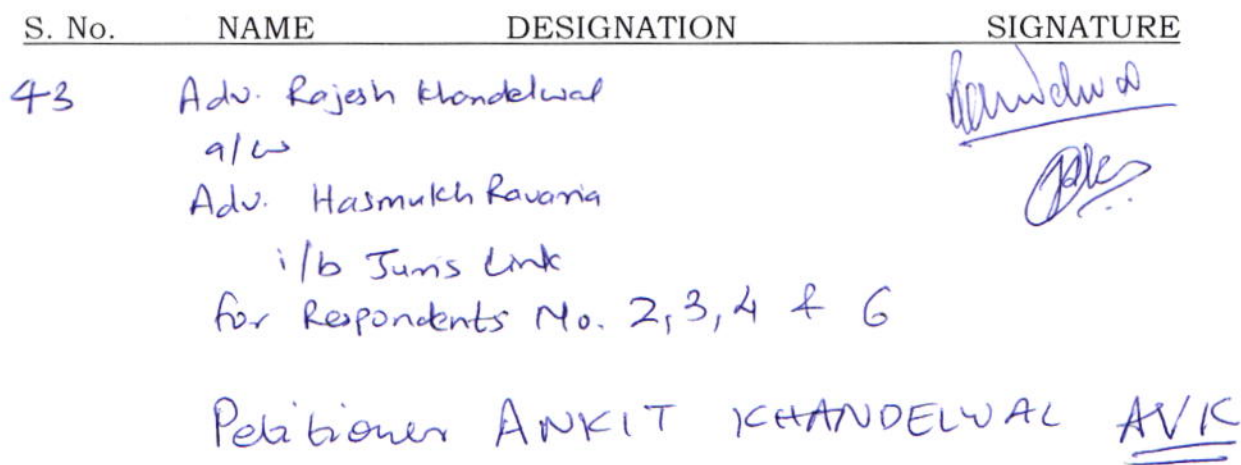 S. No. NAME DESIGNATION SIGNATURE
43 Adv. Rajesh Khandelwal
a/w
Adv. Hasmukh Ravaria
i/b Juris Link
for Respondents No. 2, 3, 4 & 6
Petitioner ANKIT KHANDELWAL AVK